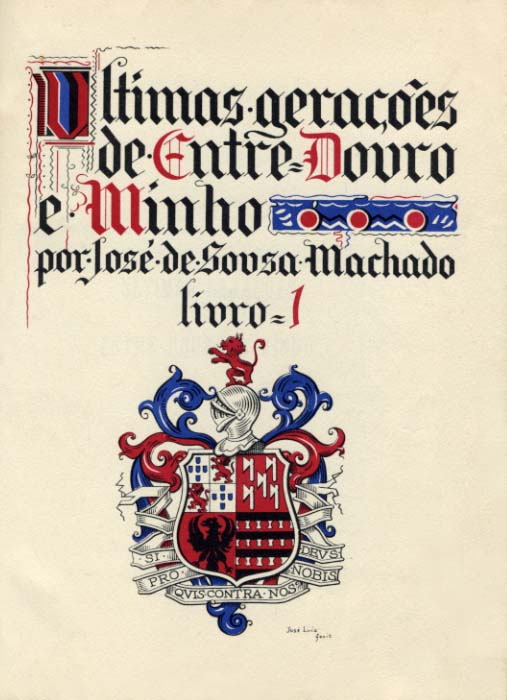 Ultimas·gerações
de·Entre=Douro
e·Minho
por·José·de·Sousa·Machado
livro=1
SI DEVS
PRO NOBIS
QVIS CONTRA NOS
José Luiz
fecit